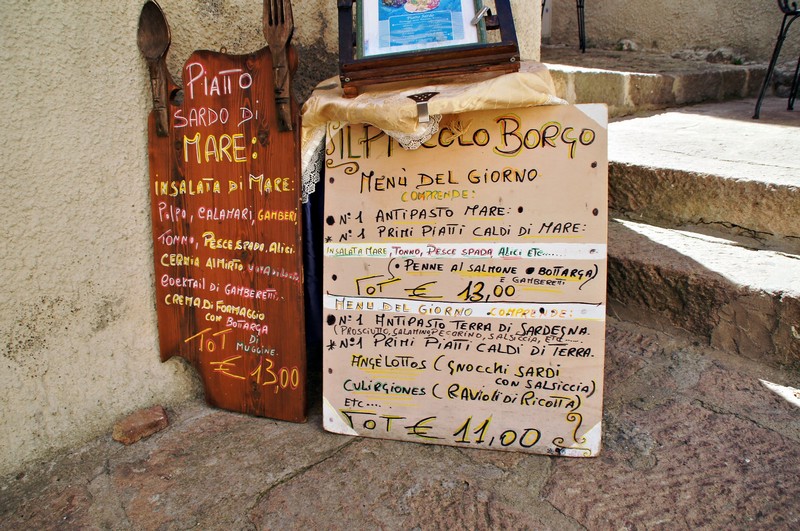 PIATTO
SARDO DI
MARE:
INSALATA DI MARE:
POLPO, CALAMARI, GAMBERI,
TONNO, PESCE SPADA, ALICI
CERNIA AL MIRTO
COCKTAIL DI GAMBERETTI.
CREMA DI FORMAGGIO
CON BOTTARGA
DI
MUGGINE.
TOT
€ 13,00
IL PICCOLO BORGO
MENÙ DEL GIORNO
COMPRENDE:
N°1 ANTIPASTO MARE:
N°1 PRIMI PIATTI CALDI DI MARE:
INSALATA MARE, TONNO, PESCE SPADA ALICI ETC......
PENNE AL SALMONE BOTTARGA)
E GAMBERETTI
TOT € 13,00
MENÙ DEL GIORNO COMPRENDE:
N°1 ANTIPASTO TERRA DI SARDEGNA.
(PROSCIUTTO, PECORINO, SALSICCIA, ETC.....
N°1 PRIMI PIATTI CALDI DI TERRA.
ANGELOTTOS (GNOCCHI SARDI
CON SALSICCIA)
CULIRGIONES (RAVIOLI DI RICOTTA)
ETC....
TOT € 11,00